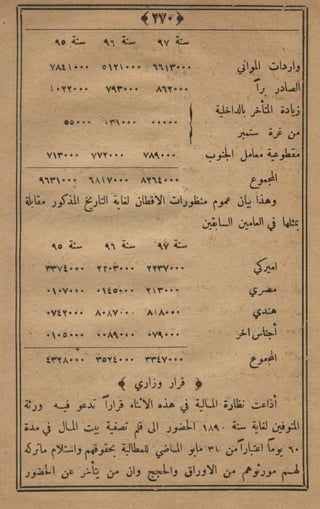 ﴿ ٢٧٠ ﴾
سنة ٩٧ سنة ٩٦ سنة ٩٥
واردات المواني ٦٦١٣٠٠٠ ٥١٢١٠٠٠ ٧٨٤١٠٠٠
الصادر براً ٨٦٢٠٠٠ ٧٩٣٠٠٠ ١٠٢٢٠٠٠
زيادة المتأخر بالداخلية
من غرة ستمبر ٠٠٠٠٠ ١٣١٠٠٠ ٥٥٠٠٠
مقطوعية معامل الجنوب ٧٨٩٠٠٠ ٧٧٢٠٠٠ ٧١٣٠٠٠
المجموع ٨٢٦٤٠٠٠ ٦٨١٧٠٠٠ ٩٦٣١٠٠٠
وهذا بيان عموم منظورات الاقطان لغاية التاريخ المذكور مقابلة
بمثلها في العامين السابقين
سنة ٩٧ سنة ٩٦ سنة ٩٥
اميركي ٢٢٣٧٠٠٠ ٢٢٠٣٠٠٠ ٣٣٧٤٠٠٠
مصري ٢١٣٠٠٠ ٠١٤٥٠٠٠ ٠١٠٧٠٠٠
هندي ٨١٨٠٠٠ ٨٠٨٧٠٠٠ ٠٧٤٢٠٠٠
أجناس اخر ٠٧٩٠٠٠ ٠٠٨٩٠٠٠ ٠١٠٥٠٠٠
المجموع ٣٣٤٧٠٠٠ ٣٥٢٤٠٠٠ ٤٣٢٨٠٠٠
﴿ قرار وزاري ﴾
أذاعت نظارة المالية في هذه الاثناء قراراً تدعو فيه ورثة
المتوفين لغاية سنة ١٨٩٠ الحضور الى قلم تصفية بيت المال في مدة
٦٠ يوماً اعتباراً من ٣١ مايو الماضي للمطالبة بحقوقهم واستلام ماتركه
لهم مورثوهم من الاوراق والحجج وان من يتأخر عن الحضور